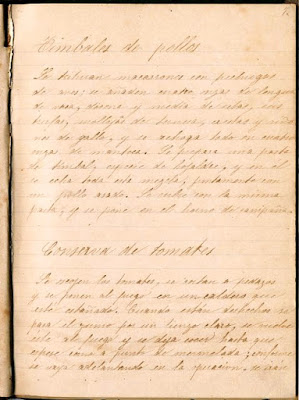 Timbales de pollos
Se saltean macarrones con pechugas
de aves; se añaden cuatro onzas de lengua
de vaca, docena y media de setas, tres
trufas, mollejas de ternera, crestas y
de gallo, y se echaga todo en cuatro
onzas de manteca. Se prepara una pasta
de timbal, especie de hojaldre, y en él
se echa toda esta mezcla, juntamente con
un pollo asado. Se cubre con la misma
pasta, y se pone en el horno de campaña.
Conserva de tomates
Se cogen los tomates, se cortan a pedazos
y se ponen al fuego en un caldero que
esté estañado. Cuando están deshechos se
pasa el zumo por un lienzo claro, se vuelve
este al fuego y se deja cocer hasta que
espese como a punto de mermelada; conforme
se vaya adelantando en la operacion, se